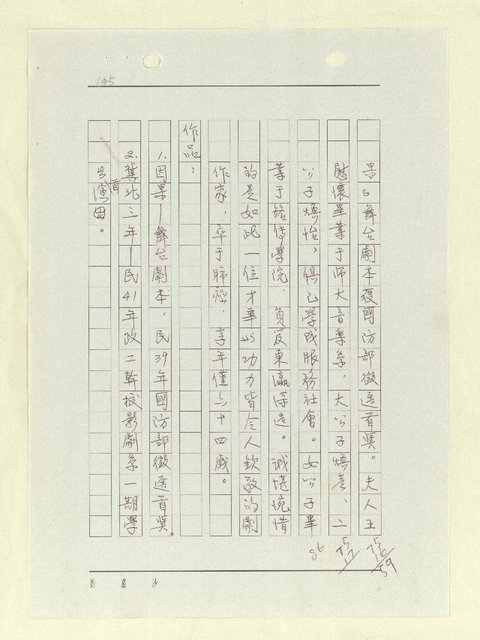 145
果」舞台劇本獲國防部徵選首獎。夫人王
慰懷畢業于師大音樂系，大公子煥
公子煥怡，俱已學成服務社會。女公子畢
業于銘傳學院，負笈東瀛深造。誠惋惜
的是如此一位才華的功力皆令人欽敬的劇
作家，卒于肺 享年僅六十四歲。
作品：
1.因果—舞台劇本，民39年國防部徵選首獎。
2.冀北三年—民41年政工幹校影劇系一期學
生首演
86
75
17
75
16
59